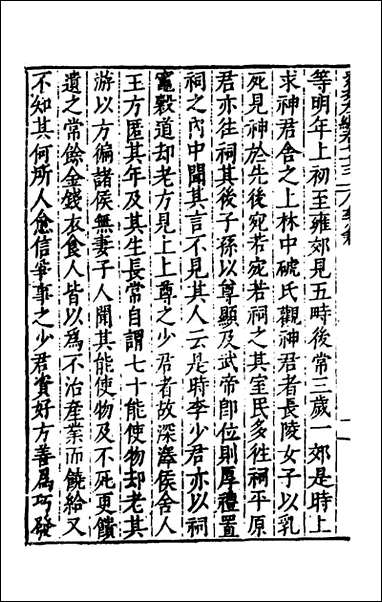 等明年上初至雍郊見五時後常三歲一郊是時上
求神君舍之上林中磃氏觀神君者長陵女子以乳
死見神於先後宛若宛若祠之其室民多往祠平原
君亦往祠其後子孫以尊顯及武帝即位則厚禮置
祠之內中聞其言不見其人云是時李少君亦以祠
竈穀道却老方見上上尊之少君者故深澤侯舍人
王方匿其年及其生長常自謂七十能使物却老其
游以方徧諸侯無妻子人聞其能使物及不死更饋
遺之常餘金錢衣食人皆以爲不治産業而饒給又
不知其何所人愈信爭事之少君資好方善爲巧發